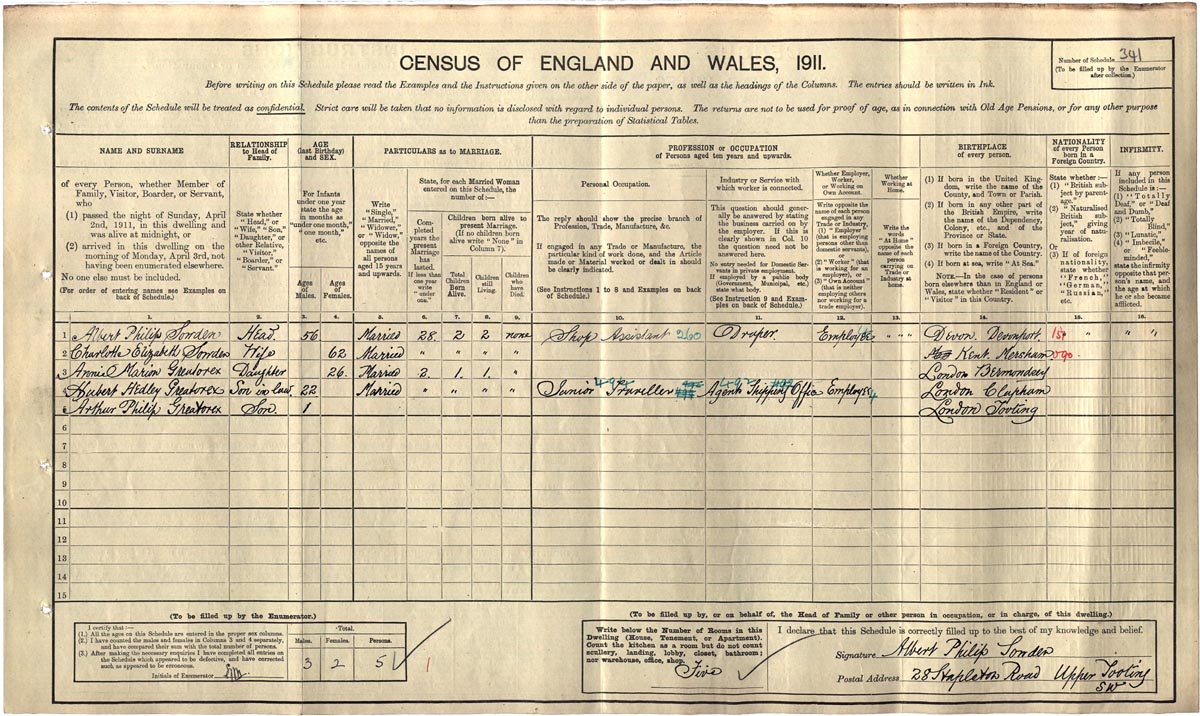 CENSUS OF ENGLAND AND WALES, 1911.
Number of Schedule 341
(To be filled up by the Enumerator
after collection.)
Before writing on this Schedule please read the Examples and the Instructions given on the other side of the paper, as well as the headings of the Columns. The entries should be written in Ink.
The contents of the Schedule will be treated as confidential. Strict care will be taken that no information is disclosed with regard to individual persons. The returns are not to be used for proof of age, as in connection with Old Age Pensions, or for any other purpose
than the preparation of Statistical Tables.
NAME AND SURNAME
of every Person, whether Member of
Family, Visitor, Boarder, or Servant,
who
(1) passed the night of Sunday, April
2nd, 1911, in this dwelling and
was alive at midnight, or
(2) arrived in this dwelling on the
morning of Monday, April 3rd, not
having been enumerated elsewhere.
No one else must be included.
(For order of entering names see Examples on
back of Schedule.)
RELATIONSHIP
to Head of
Family.
State whether
"Head," or
"Wife," "Son,"
"Daughter," or
other Relative,
"Visitor,"
"Boarder," or
"Servant."
AGE
(last Birthday)
and SEX.
For Infants
under one year
state the age
in months as
"under one month,"
"one month,"
etc.
Ages
of
Males.
Ages
of
Females.
PARTICULARS as to MARRIAGE.
Write
"Single,"
"Married,"
"Widower,"
or "Widow,"
opposite the
names of
all persons
aged 15 years
and upwards.
State, for each Married Woman
entered on this Schedule, the
number of :—
Completed
years the
present
Marriage
has
lasted.
If less than
one year
write
"under
one."
Children born alive to
present Marriage.
(If no children born
alive write "None" in
Column 7).
Total
Children
Born
Alive.
Children
still
Living.
Children
who
have
Died.
PROFESSION or OCCUPATION
of Persons aged ten years and upwards.
Personal Occupation.
The reply should show the precise branch of
Profession, Trade, Manufacture, &c.
If engaged in any Trade or Manufacture, the
particular kind of work done, and the Article
made or Material worked or dealt in should
be clearly indicated.
(See Instructions 1 to 8 and Examples on back
of Schedule.)
Industry or Service with
which worker is connected.
This question should generally
be answered by stating
the business carried on by
the employer. If this is
clearly shown in Col. 10
the question need not be
answered here.
No entry needed for Domestic Servants
in private employment.
If employed by a public body
(Government, Municipal, etc.)
state what body.
(See Instruction 9 and Examples
on back of Schedule.)
Whether Employer,
Worker,
or Working on
Own Account.
Write opposite the
name of each person
engaged in any
Trade or Industry,
(1) "Employer"
(that is employing
persons other than
domestic servants),
or
(2) "Worker" (that
is working for an
employer), or
(3) "Own Account"
(that is neither
employing others
nor working for a
trade employer).
Whether
Working at
Home.
Write the
words
"At Home"
opposite the
name of each
person
carrying on
Trade or
Industry at
home.
BIRTHPLACE
of every person.
(1) If born in the United Kingdom,
write the name of the
County, and Town or Parish.
(2) If born in any other part of
the British Empire, write
the name of the Dependency,
Colony, etc., and of the
Province or State.
(3) If born in a Foreign Country,
write the name of the Country.
(4) If born at sea, write "At Sea."
NOTE.—In the case of persons
born elsewhere than in England or
Wales, state whether "Resident" or
"Visitor" in this Country.
NATIONALITY
of every Person
born in a
Foreign Country.
State whether :—
(1) "British subject
by parentage."
(2) "Naturalised
British
subject," giving
year of naturalisation.
Or
(3) If of foreign
nationality,
state whether
"French,"
"German,"
"Russian,"
etc.
INFIRMITY.
If any person
included in this
Schedule is :—
(1) "Totally
Deaf," or "Deaf
and Dumb,"
(2) "Totally
Blind,"
(3) "Lunatic,"
(4) "Imbecile,"
or "Feeble-
minded,"
state the infirmity
opposite that person's
name, and
the age at which
he or she became
afflicted.
1. 2. 3. 4. 5. 6. 7. 8. 9. 10. 11. 12. 13. 14. 15. 16.
1 Albert Philip Sowden Head 56 Married 28 2 2 none Shop Assistant 260 Draper Employee " " " Devon. Devonport 150 " "
2 Charlotte Elizabeth Sowden Wife 62 Married " " " " Kent. Mersham 090
3 Annie Marion Greatorex Daughter 26 Married 2 1 1 " London Bermondsey
4 Hubert Hedley Greatorex Son in law 22 Married " " " Junior Traveller Agents Shipping Office Employee London Clapham
5 Arthur Philip Greatorex Son 1 London Tooting
6
7
8
9
10
11
12
13
14
15
(To be filled up by the Enumerator.)
I certify that :—
(1.) All the ages on this Schedule are entered in the proper sex columns.
(2.) I have counted the males and females in Columns 3 and 4 separately,
and have compared their sum with the total number of persons.
(3.) After making the necessary enquiries I have completed all entries on
the Schedule which appeared to be defective, and have corrected
such as appeared to be erroneous.
Initials of Enumerator
Total.
Males. Females. Persons.
3 2 5
1
(To be filled up by, or on behalf of, the Head of Family or other person in occupation, or in charge, of this dwelling.)
Write below the Number of Rooms in this
Dwelling (House, Tenement, or Apartment).
Count the kitchen as a room but do not count
scullery, landing, lobby, closet, bathroom;
nor warehouse, office, shop.
Five
I declare that this Schedule is correctly filled up to the best of my knowledge and belief.
Signature Albert Philip Sowden
Postal Address 28 Stapleton Road Upper Tooting
SW